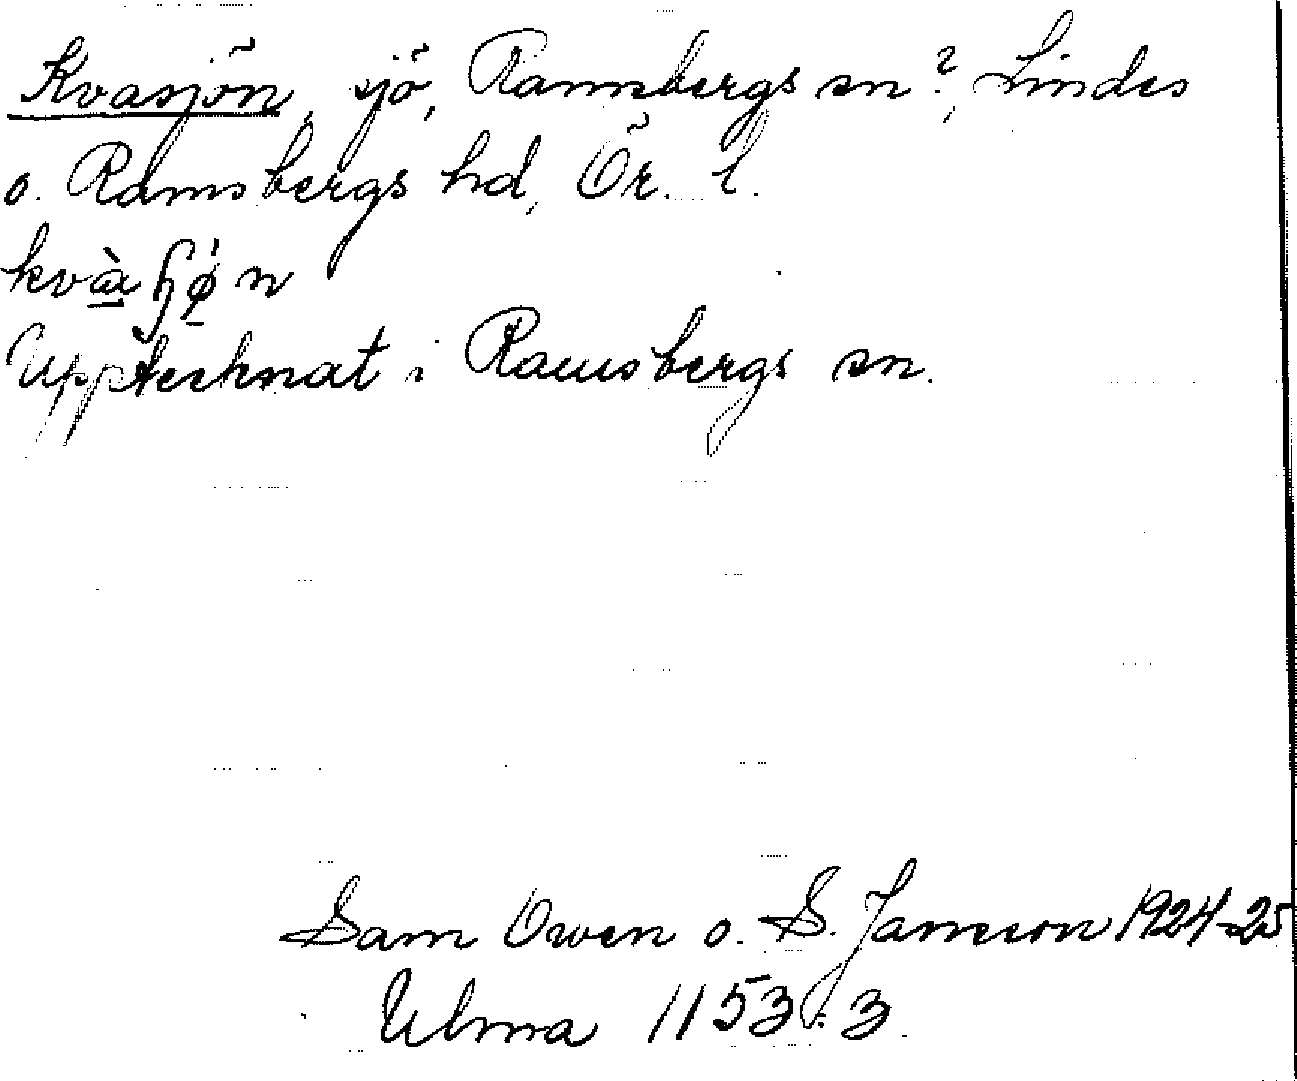 Kvasjön, sjö, Ramsbergs sn?, Lindes
o. Ramsbergs hd, Ör. l.
Upptecknat i Ramsbergs sn.
Sam Owen o. S. Jansson 1924-25
Ulma 1153:3.